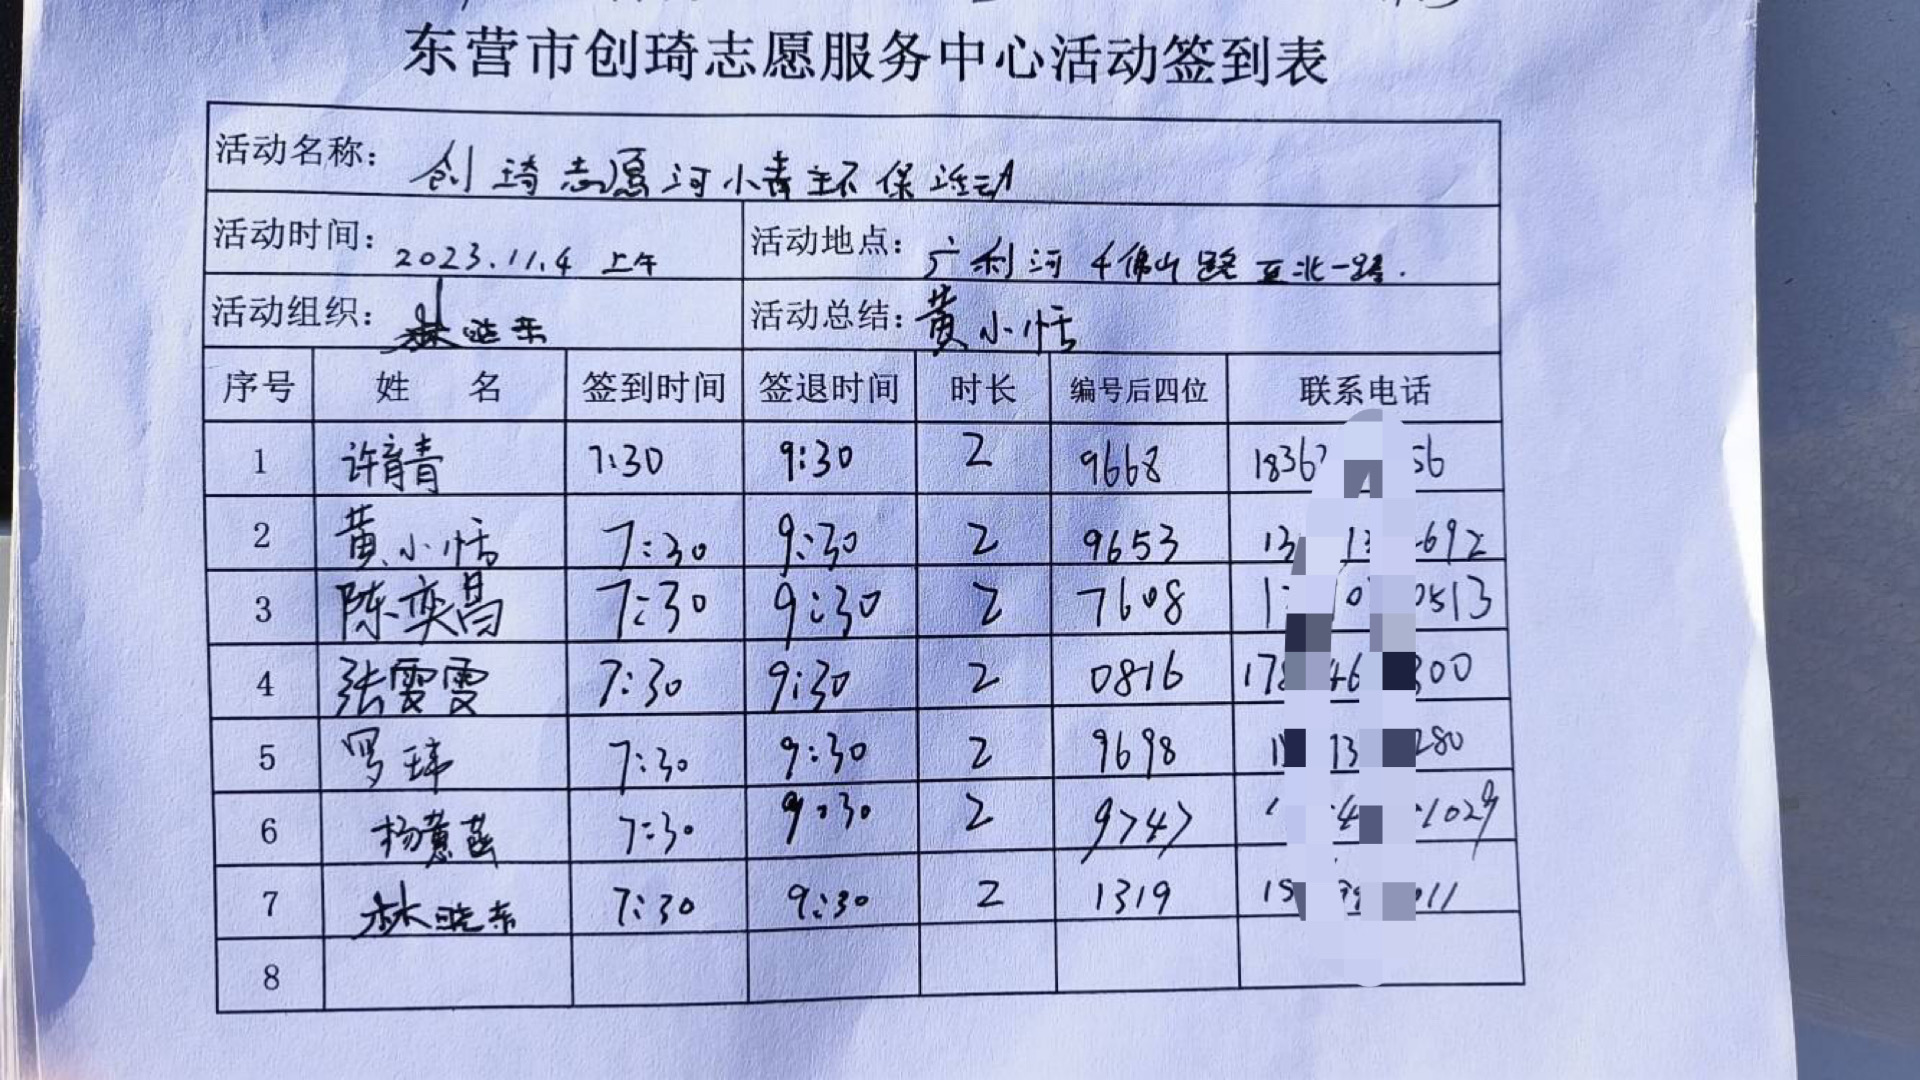 东营市创琦志愿服务中心活动签到表
活动名称: 创琦志愿河小青环保活动
活动时间: 2023.11.4 上午 活动地点: 广利河千佛山路至北一路.
活动组织: 林晓东 活动总结: 黄小恬
序号 姓 名 签到时间 签退时间 时长 编号后四位 联系电话
1 许育青 7:30 9:30 2 9668 1836 56
2 黄小恬 7:30 9:30 2 9653 13 13 692
3 陈奕昌 7:30 9:30 2 7608 1 0 0513
4 张雯雯 7:30 9:30 2 0816 17 46 300
5 罗玮 7:30 9:30 2 9698 1 13 280
6 杨蕙菡 7:30 9:30 2 9747 1 4 1029
7 林晓东 7:30 9:30 2 1319 15 011
8